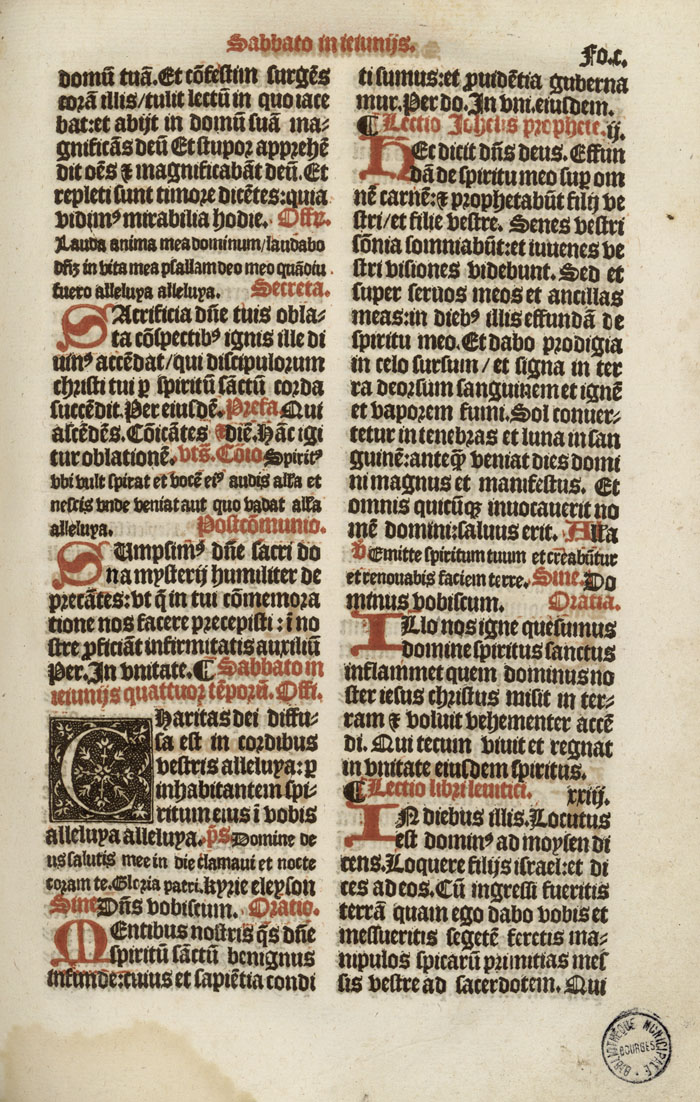 Sabbato in ieiunijs.
Fo.c.
domū tuā. Et cōfestim surgēs
corā illis/tulit lectū in quo iace
bat:et abijt in domū suā ma⸗
gnificās deū Et stupor apprehē
dit oēs ⁊ magnificabāt deū. Et
repleti sunt timore dicētes:quia
vidimꝰ mirabilia hodie. Offr.
Lauda anima mea dominum/laudabo
dn̄z in vita mea psallam deo meo quādiu
fuero alleluya alleluya. Secreta.
SAcrificia dn̄e tuis obla⸗
ta cōspectibꝰ ignis ille di
uinꝰ accēdat/qui discipulorum
christi tui ꝑ spiritū sāctū corda
succēdit. Per eiusdē. Prefa Qui
ascēdēs. Cōicātes ⁊ diē. Hāc igi
tur oblationē. vts̄. Cōio Spiritꝰ
vbi vult spirat et vocē eiꝰ audis alľa et
nescis vnde veniat aut quo vadat alľa
alleluya. Postcōmunio.
SUmpsimꝰ dn̄e sacri do
na mysterij humiliter de
precātes:vt q̄ in tui cōmemora
tione nos facere precepisti: ī no
stre ꝓficiāt infirmitatis auxiliū
Per. In vnitate. ¶ Sabbato in
ieiunijs quattuor tēporū. Offi.
CHaritas dei diffu⸗
sa est in cordibus
vestris alleluya: ꝑ
inhabitantem spi⸗
ritum eius ī vobis
alleluya alleluya. p̄s Domine de
us salutis mee in die clamaui et nocte
coram te. Gloria patri. kyrie eleyson
Sine Dn̄s vobiscum. Oratio.
MEntibus nostris q̄s dn̄e
spiritū sāctū benignus
infunde:cuius et sapiētia condi
ti sumus:et ꝓuidētia guberna
mur. Per do. In vni. eiusdem.
¶ Lectio Johelis prophete. ij.
HEt dicit dn̄s deus. Effun
dā de spiritu meo suꝑ om
nē carnē:⁊ prophetabūt filij ve
stri/et filie vestre. Senes vestri
sōnia somniabūt:et iuuenes ve
stri visiones videbunt. Sed et
super seruos meos et ancillas
meas:in diebꝰ illis effundā de
spiritu meo. Et dabo prodigia
in celo sursum/et signa in ter
ra deorsum sanguinem et ignē
et vaporem fumi. Sol conuer⸗
tetur in tenebras et luna in san
guinē:anteq̄ʒ veniat dies domi
ni magnus et manifestus. Et
omnis quicūqʒ inuocauerit no
mē domini:saluus erit. Alľa
v̄ Emitte spiritum tuum et creabūtur
et renouabis faciem terre. Sine. Do
minus vobiscum. Oratia.
ILlo nos igne quesumus
domine spiritus sanctus
inflammet quem dominus no
ster iesus christus misit in ter⸗
ram ⁊ voluit vehementer accē
di. Qui tecum viuit et regnat
in vnitate eiusdem spiritus.
¶ Lectio libri leuitici. xxiij.
IN diebus illis. Locutus
est dominꝰ ad moysen di
cens. Loquere filijs israel:et di
ces ad eos. Cū ingressi fueritis
terrā quam ego dabo vobis et
messueritis segetē feretis ma⸗
nipulos spicarū primitias mes
sis vestre ad sacerdotem. Qui
BIBLIOTHÈQUE MUNICIPALE
BOURGES